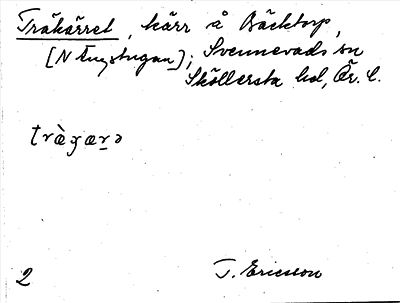 Träkärret, kärr å Bäcktorp,
[N Ängstugan]; Svennevads sn
Sköllersta hd, Ör. l.
trὰɣæṟə
2
T. Ericsson